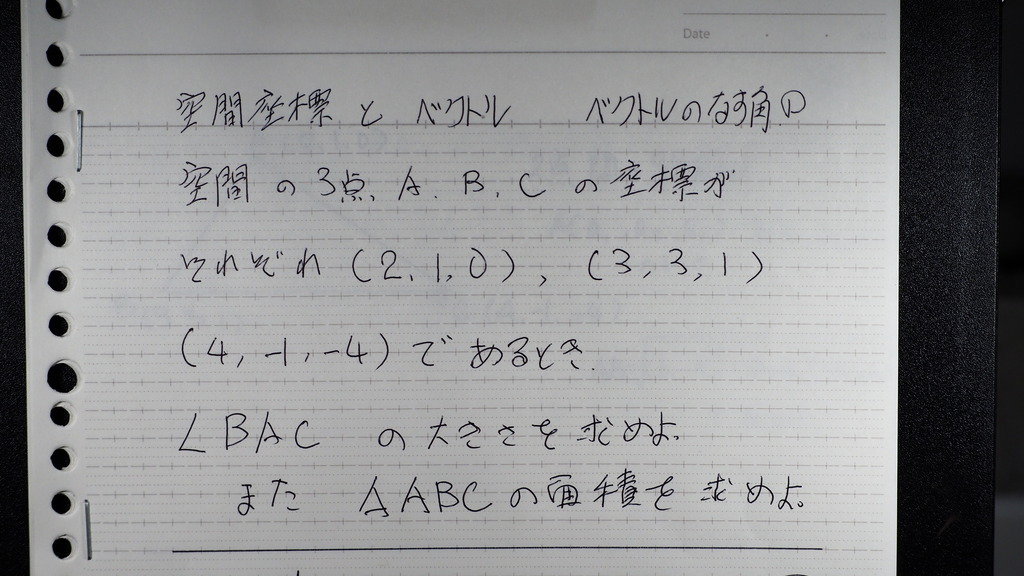 Date
空間座標とベクトル ベクトルのなす角①
空間の3点、A、B、Cの座標が
それぞれ(2,1,0),(3,3,1)
(4,-1,-4)であるとき、
∠BACの大きさを求めよ。
また △ABCの面積を求めよ。